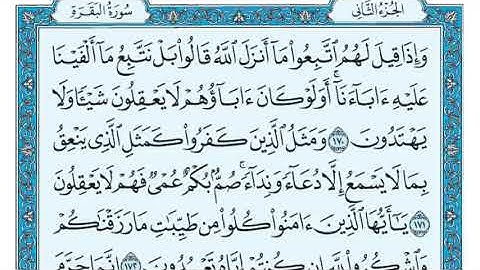 الجزء الثاني
سورة البقرة
وَإِذَا قِيلَ لَهُمُ ٱتَّبِعُوا۟ مَآ أَنزَلَ ٱللَّهُ قَالُوا۟ بَلْ نَتَّبِعُ مَآ أَلْفَيْنَا
عَلَيْهِ ءَابَآءَنَآ ۗ أَوَلَوْ كَانَ ءَابَآؤُهُمْ لَا يَعْقِلُونَ شَيْـًٔا وَلَا
يَهْتَدُونَ ١٧٠ وَمَثَلُ ٱلَّذِينَ كَفَرُوا۟ كَمَثَلِ ٱلَّذِى يَنْعِقُ
بِمَا لَا يَسْمَعُ إِلَّا دُعَآءً وَنِدَآءً ۚ صُمٌّۢ بُكْمٌ عُمْىٌ فَهُمْ لَا يَعْقِلُونَ
١٧١ يَـٰٓأَيُّهَا ٱلَّذِينَ ءَامَنُوا۟ كُلُوا۟ مِن طَيِّبَـٰتِ مَا رَزَقْنَـٰكُمْ
وَٱشْكُرُوا۟ لِلَّهِ إِن كُنتُمْ إِيَّاهُ تَعْبُدُونَ ١٧٢ إِنَّمَا حَرَّمَ